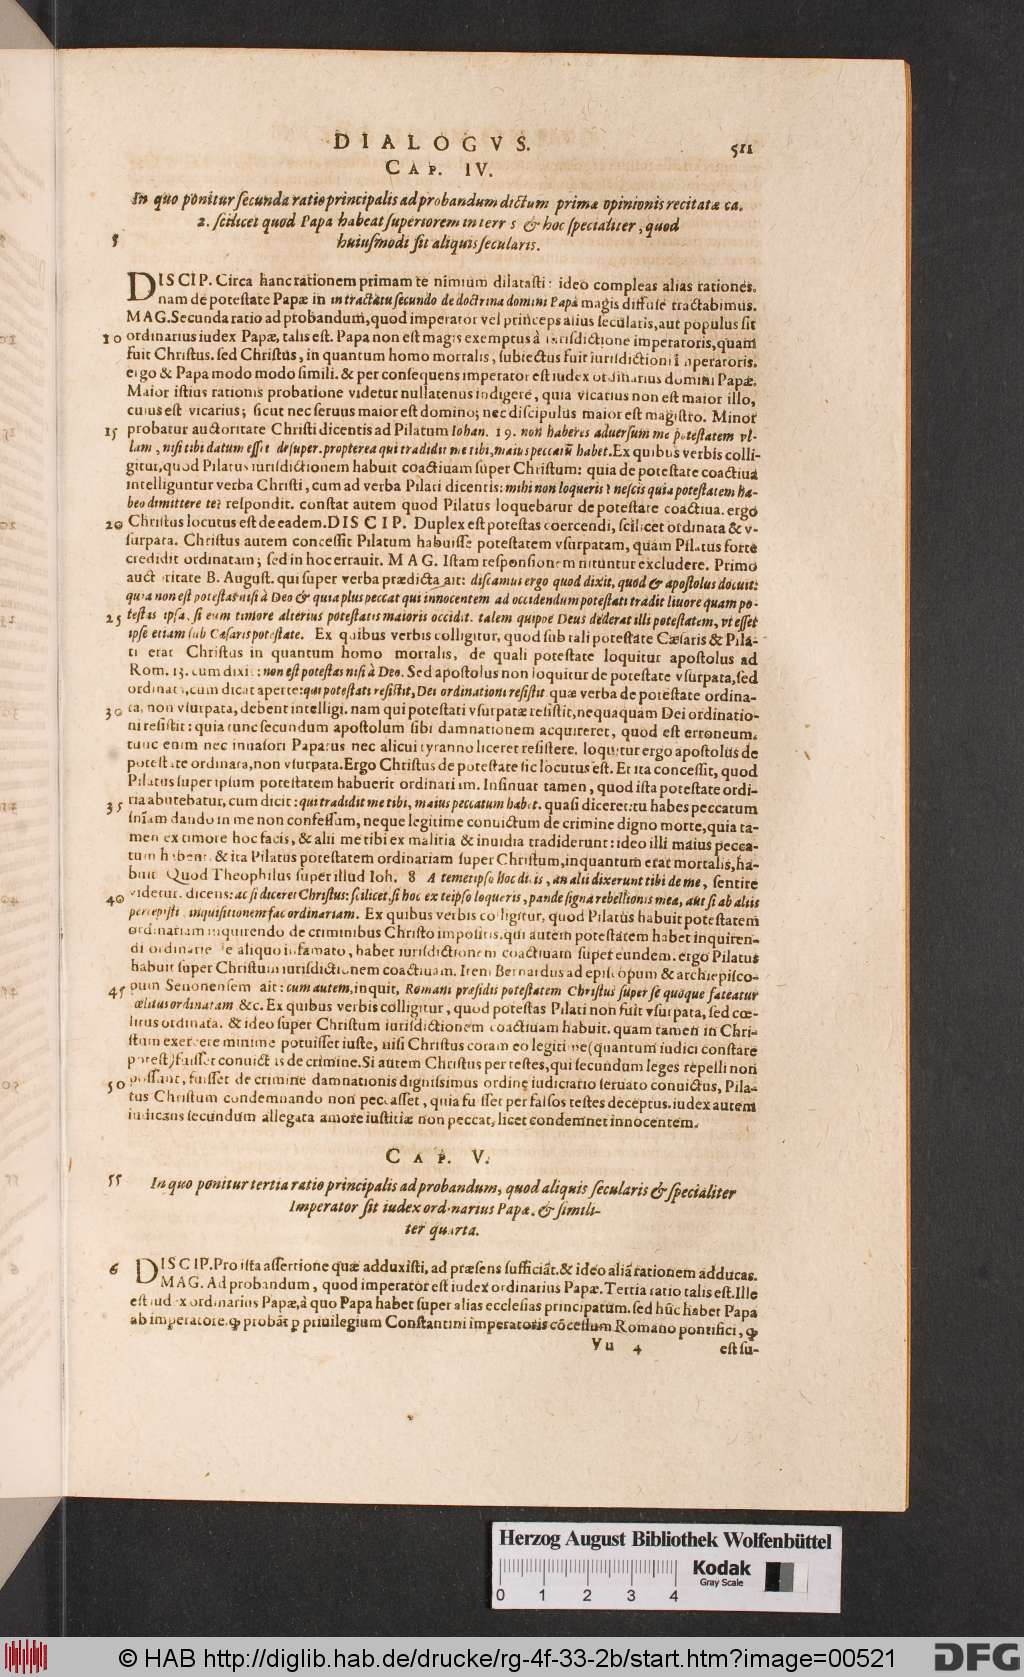 DIALOGVS. 511
CAP. IV.
In quo ponitur secunda ratio principalis ad probandum dictum primæ opinionis recitatæ ca.
2. scilicet quod Papa habeat superiorem in terr s & hoc specialiter, quod
5 huiusmodi sit aliquis secularis.
DISCIP. Circa hanc rationem primam te nimium dilatasti: ideo compleas alias rationes.
nam de potestate Papæ in in tractatu secundo de doctrina domini Papa magis diffuse tractabimus.
MAG. Secunda ratio ad probandum, quod imperator vel princeps alius secularis, aut populus sit
10 ordinarius iudex Papæ, talis est. Papa non est magis exemptus à iurisdictione imperatoris, quam
fuit Christus. sed Christus, in quantum homo mortalis, subiectus fuit iurisdictioni imperatoris.
ergo & Papa modo modo simili. & per consequens imperator est iudex ordinarius domini Papæ.
Maior istius rationis probatione videtur nullatenus indigere, quia vicarius non est maior illo,
cuius est vicarius; sicut nec seruus maior est domino; nec discipulus maior est magistro. Minor
15 probatur auctoritate Christi dicentis ad Pilatum Iohan. 19. non haberes aduersum me potestatem vl-
lam, nisi tibi datum esset desuper. propterea qui tradidit me tibi, maius peccatū habet. Ex quibus verbis colli-
gitur, quod Pilatus iurisdictionem habuit coactiuam super Christum: quia de potestate coactiua
intelliguntur verba Christi, cum ad verba Pilati dicentis: mihi non loqueris? nescis quia potestatem ha-
beo dimittere te? respondit. constat autem quod Pilatus loquebatur de potestate coactiua. ergo
20 Christus locutus est de eadem. DISCIP. Duplex est potestas coercendi, scilicet ordinata & v-
surpata. Christus autem concessit Pilatum habuisse potestatem vsurpatam, quam Pilatus forte
credidit ordinatam; sed in hoc errauit. MAG. Istam responsionem nituntur excludere. Primo
auctoritate B. August. qui super verba prædicta ait: discamus ergo quod dixit, quod & apostolus docuit:
quia non est potestas nisi à Deo & quia plus peccat qui innocentem ad occidendum potestati tradit liuore quam po-
25 testas ipsa, si eum timore alterius potestatis maioris occidit. talem quippe Deus dederat illi potestatem, vt esset
ipse etiam sub Cæsaris potestate. Ex quibus verbis colligitur, quod sub tali potestate Cæsaris & Pila-
ti erat Christus in quantum homo mortalis, de quali potestate loquitur apostolus ad
Rom. 13. cum dixit: non est potestas nisi à Deo. Sed apostolus non loquitur de potestate vsurpata, sed
ordinata, cum dicat aperte: qui potestati resistit, Dei ordinationi resistit. quæ verba de potestate ordina-
30 ta, non vsurpata, debent intelligi. nam qui potestati vsurpatæ resistit, nequaquam Dei ordinatio-
ni resistit: quia tunc secundum apostolum sibi damnationem acquireret, quod est erroneum.
tunc enim nec inuasori Papatus nec alicui tyranno liceret resistere. loquitur ergo apostolus de
potestate ordinata, non vsurpata. Ergo Christus de potestate sic locutus est. Et ita concessit, quod
Pilatus super ipsum potestatem habuerit ordinariam. Insinuat tamen, quod ista potestate ordi-
35 ria abutebatur, cum dicit: qui tradidit me tibi, maius peccatum habet. quasi diceret: tu habes peccatum
sniam dando in me non confessum, neque legitime conuictum de crimine digno morte, quia ta-
men ex timore hoc facis, & alii me tibi ex malitia & inuidia tradiderunt: ideo illi maius pecca-
tum habent. & ita Pilatus potestatem ordinariam super Christum, inquantum erat mortalis, ha-
buit. Quod Theophilus super illud Ioh. 8 A temetipso hoc dicis, an alii dixerunt tibi de me, sentire
40 videtur, dicens: ac si diceret Christus: scilicet, si hoc ex teipso loqueris, pande signa rebellionis meæ, aut si ab aliis
percepisti, inquisitionem fac ordinariam. Ex quibus verbis colligitur, quod Pilatus habuit potestatem
ordinariam inquirendo de criminibus Christo impositis. qui autem potestatem habet inquiren-
di ordinarie de aliquo infamato, habet iurisdictionem coactiuam super eundem. ergo Pilatus
habuit super Christum iurisdictionem coactiuam. Item Bernardus ad episcopum & archiepisco-
45 pum Senonensem ait: cum autem, inquit, Romani præsidis potestatem Christus super se quoque fateatur
cælitus ordinatam &c. Ex quibus verbis colligitur, quod potestas Pilati non fuit vsurpata, sed cœ-
litus ordinata. & ideo super Christum iurisdictionem coactiuam habuit. quam tamen in Chri-
stum exercere minime potuisset iuste, nisi Christus coram eo legitime (quantum iudici constare
potest) fuisset conuictus de crimine. Si autem Christus per testes, qui secundum leges repelli non
50 possant, fuisset de crimine damnationis dignissimus ordine iudiciario seruato conuictus, Pila-
tus Christum condemnando non peccasset, quia fuisset per falsos testes deceptus. iudex autem
iudicans secundum allegata amore iustitiæ non peccat, licet condemnet innocentem.
CAP. V.
55 In quo ponitur tertia ratio principalis ad probandum, quod aliquis secularis & specialiter
Imperator sit iudex ordinarius Papæ. & simili-
ter quarta.
6 DISCIP. Pro ista assertione quæ adduxisti, ad præsens sufficiāt. & ideo aliā rationem adducas.
MAG. Ad probandum, quod imperator est iudex ordinarius Papæ. Tertia ratio talis est. Ille
est iudex ordinarius Papæ, à quo Papa habet super alias ecclesias principatum. sed hūc habet Papa
ab imperatore. ꝙ probāt ꝑ priuilegium Constantini imperatoris cōcessum Romano pontifici, ꝙ
Vu 4 est su-
Herzog August Bibliothek Wolfenbüttel
0 1 2 3 4
Kodak
Gray Scale
© HAB http://diglib.hab.de/drucke/rg-4f-33-2b/start.htm?image=00521
DFG